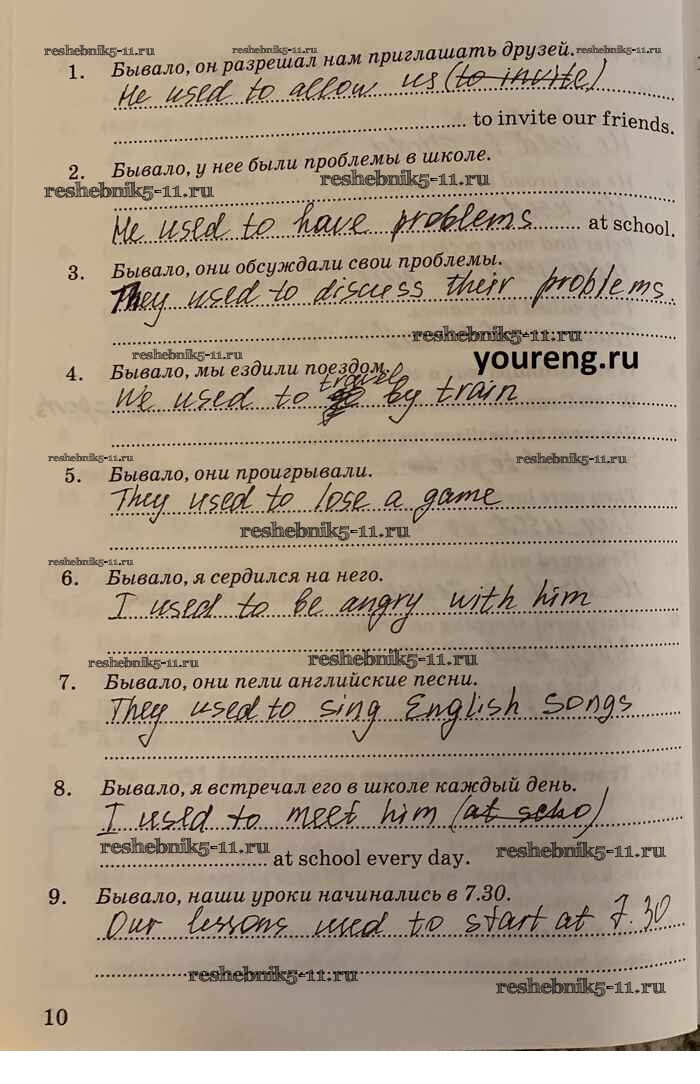 reshebnik5-11.ru reshebnik5-11.ru reshebnik5-11.ru
1. Бывало, он разрешал нам приглашать друзей.
He used to allow us (to invite)
to invite our friends.
2. Бывало, у нее были проблемы в школе.
reshebnik5-11.ru reshebnik5-11.ru
He used to have problems at school.
3. Бывало, они обсуждали свои проблемы.
They used to discuss their problems.
reshebnik5-11.ru
reshebnik5-11.ru youreng.ru
4. Бывало, мы ездили поездом.
travel
We used to go by train
reshebnik5-11.ru reshebnik5-11.ru
5. Бывало, они проигрывали.
They used to lose a game
reshebnik5-11.ru
reshebnik5-11.ru
6. Бывало, я сердился на него.
I used to be angry with him
reshebnik5-11.ru reshebnik5-11.ru
7. Бывало, они пели английские песни.
They used to sing English songs
8. Бывало, я встречал его в школе каждый день.
I used to meet him (at scho)
reshebnik5-11.ru reshebnik5-11.ru
at school every day.
9. Бывало, наши уроки начинались в 7.30.
Our lessons used to start at 7.30
reshebnik5-11.ru reshebnik5-11.ru
10